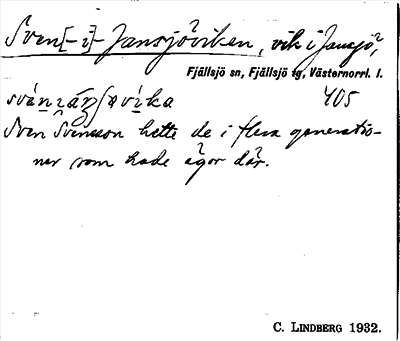 Sven[-i]-Jansjöviken, vik i Jansjö,
Fjällsjö sn, Fjällsjö tg, Västernorrl. l.
405
Sven Svensson hette de i flera generatio-
ner som hade ägor där.
C. LINDBERG 1932.